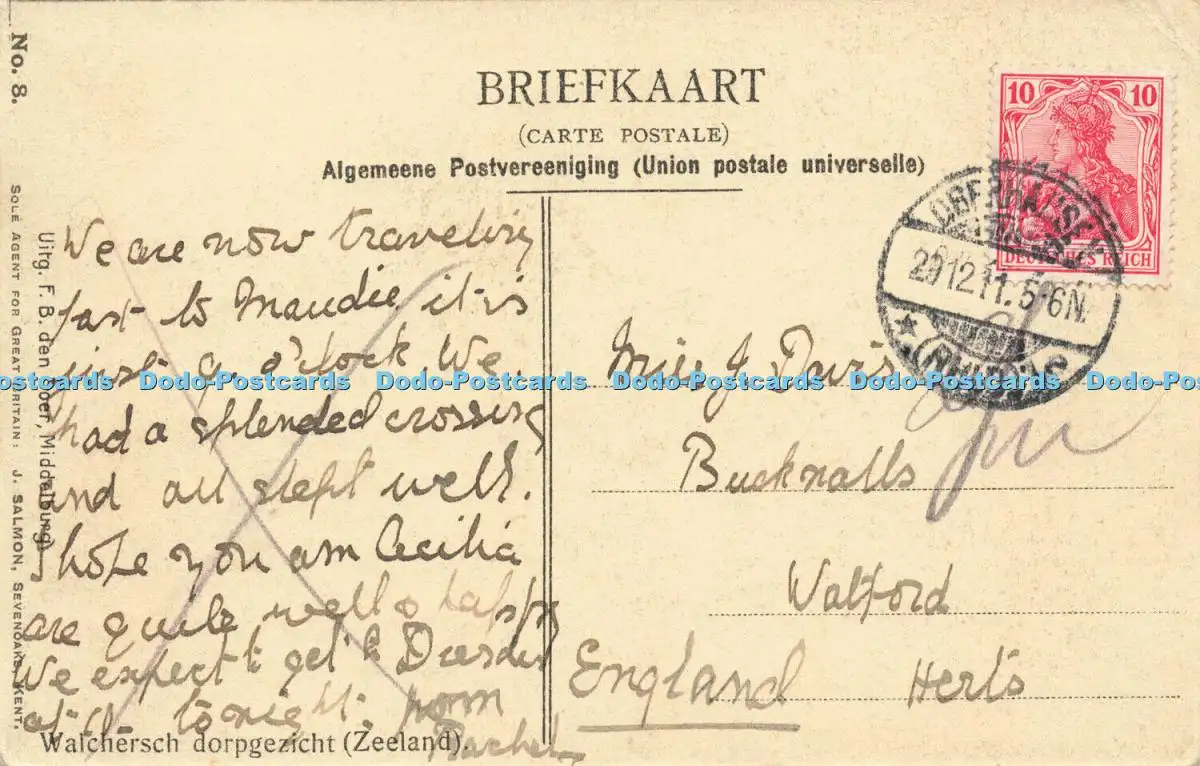 No. 8.
BRIEFKAART
(CARTE POSTALE)
Algemeene Postvereeniging (Union postale universelle)
10 10
DEUTSCHES REICH
OBERHAUSEN
29 12 11. 5-6N.
We are now traveling
fast to Maudie it is
just 9 o'clock We
had a splended crossing
and all slept well.
I hope you am Cecilia
are quite well & happy
We expect to get to
tonight from
Rachel
Miss J Davis
Bucknalls
Watford
England Herts
Dodo-Postcards Dodo-Postcards Dodo-Postcards Dodo-Postcards Dodo-Postcards Dodo-Postcards
Uitg. F. B. den Boer, Middelburg.
SOLE AGENT FOR GREAT BRITAIN: J. SALMON, SEVENOAKS, KENT.
Walchersch dorpgezicht (Zeeland).